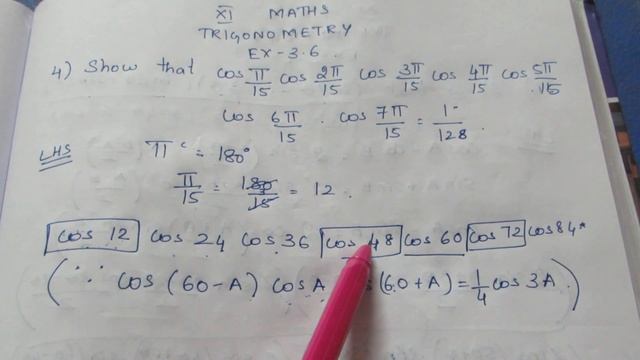 XI MATHS
TRIGONOMETRY
EX-3.6
4) Show that cos π/15 cos 2π/15 cos 3π/15 cos 4π/15 cos 5π/15
cos 6π/15 . cos 7π/15 = 1/128 .
LHS πᶜ = 180°
π/15 = 180/15 = 12 .
cos 12 cos 24 cos 36 cos 48 cos 60 cos 72 cos 84 *
(∵ cos (60-A) cos A (60+A) = 1/4 cos 3A .)